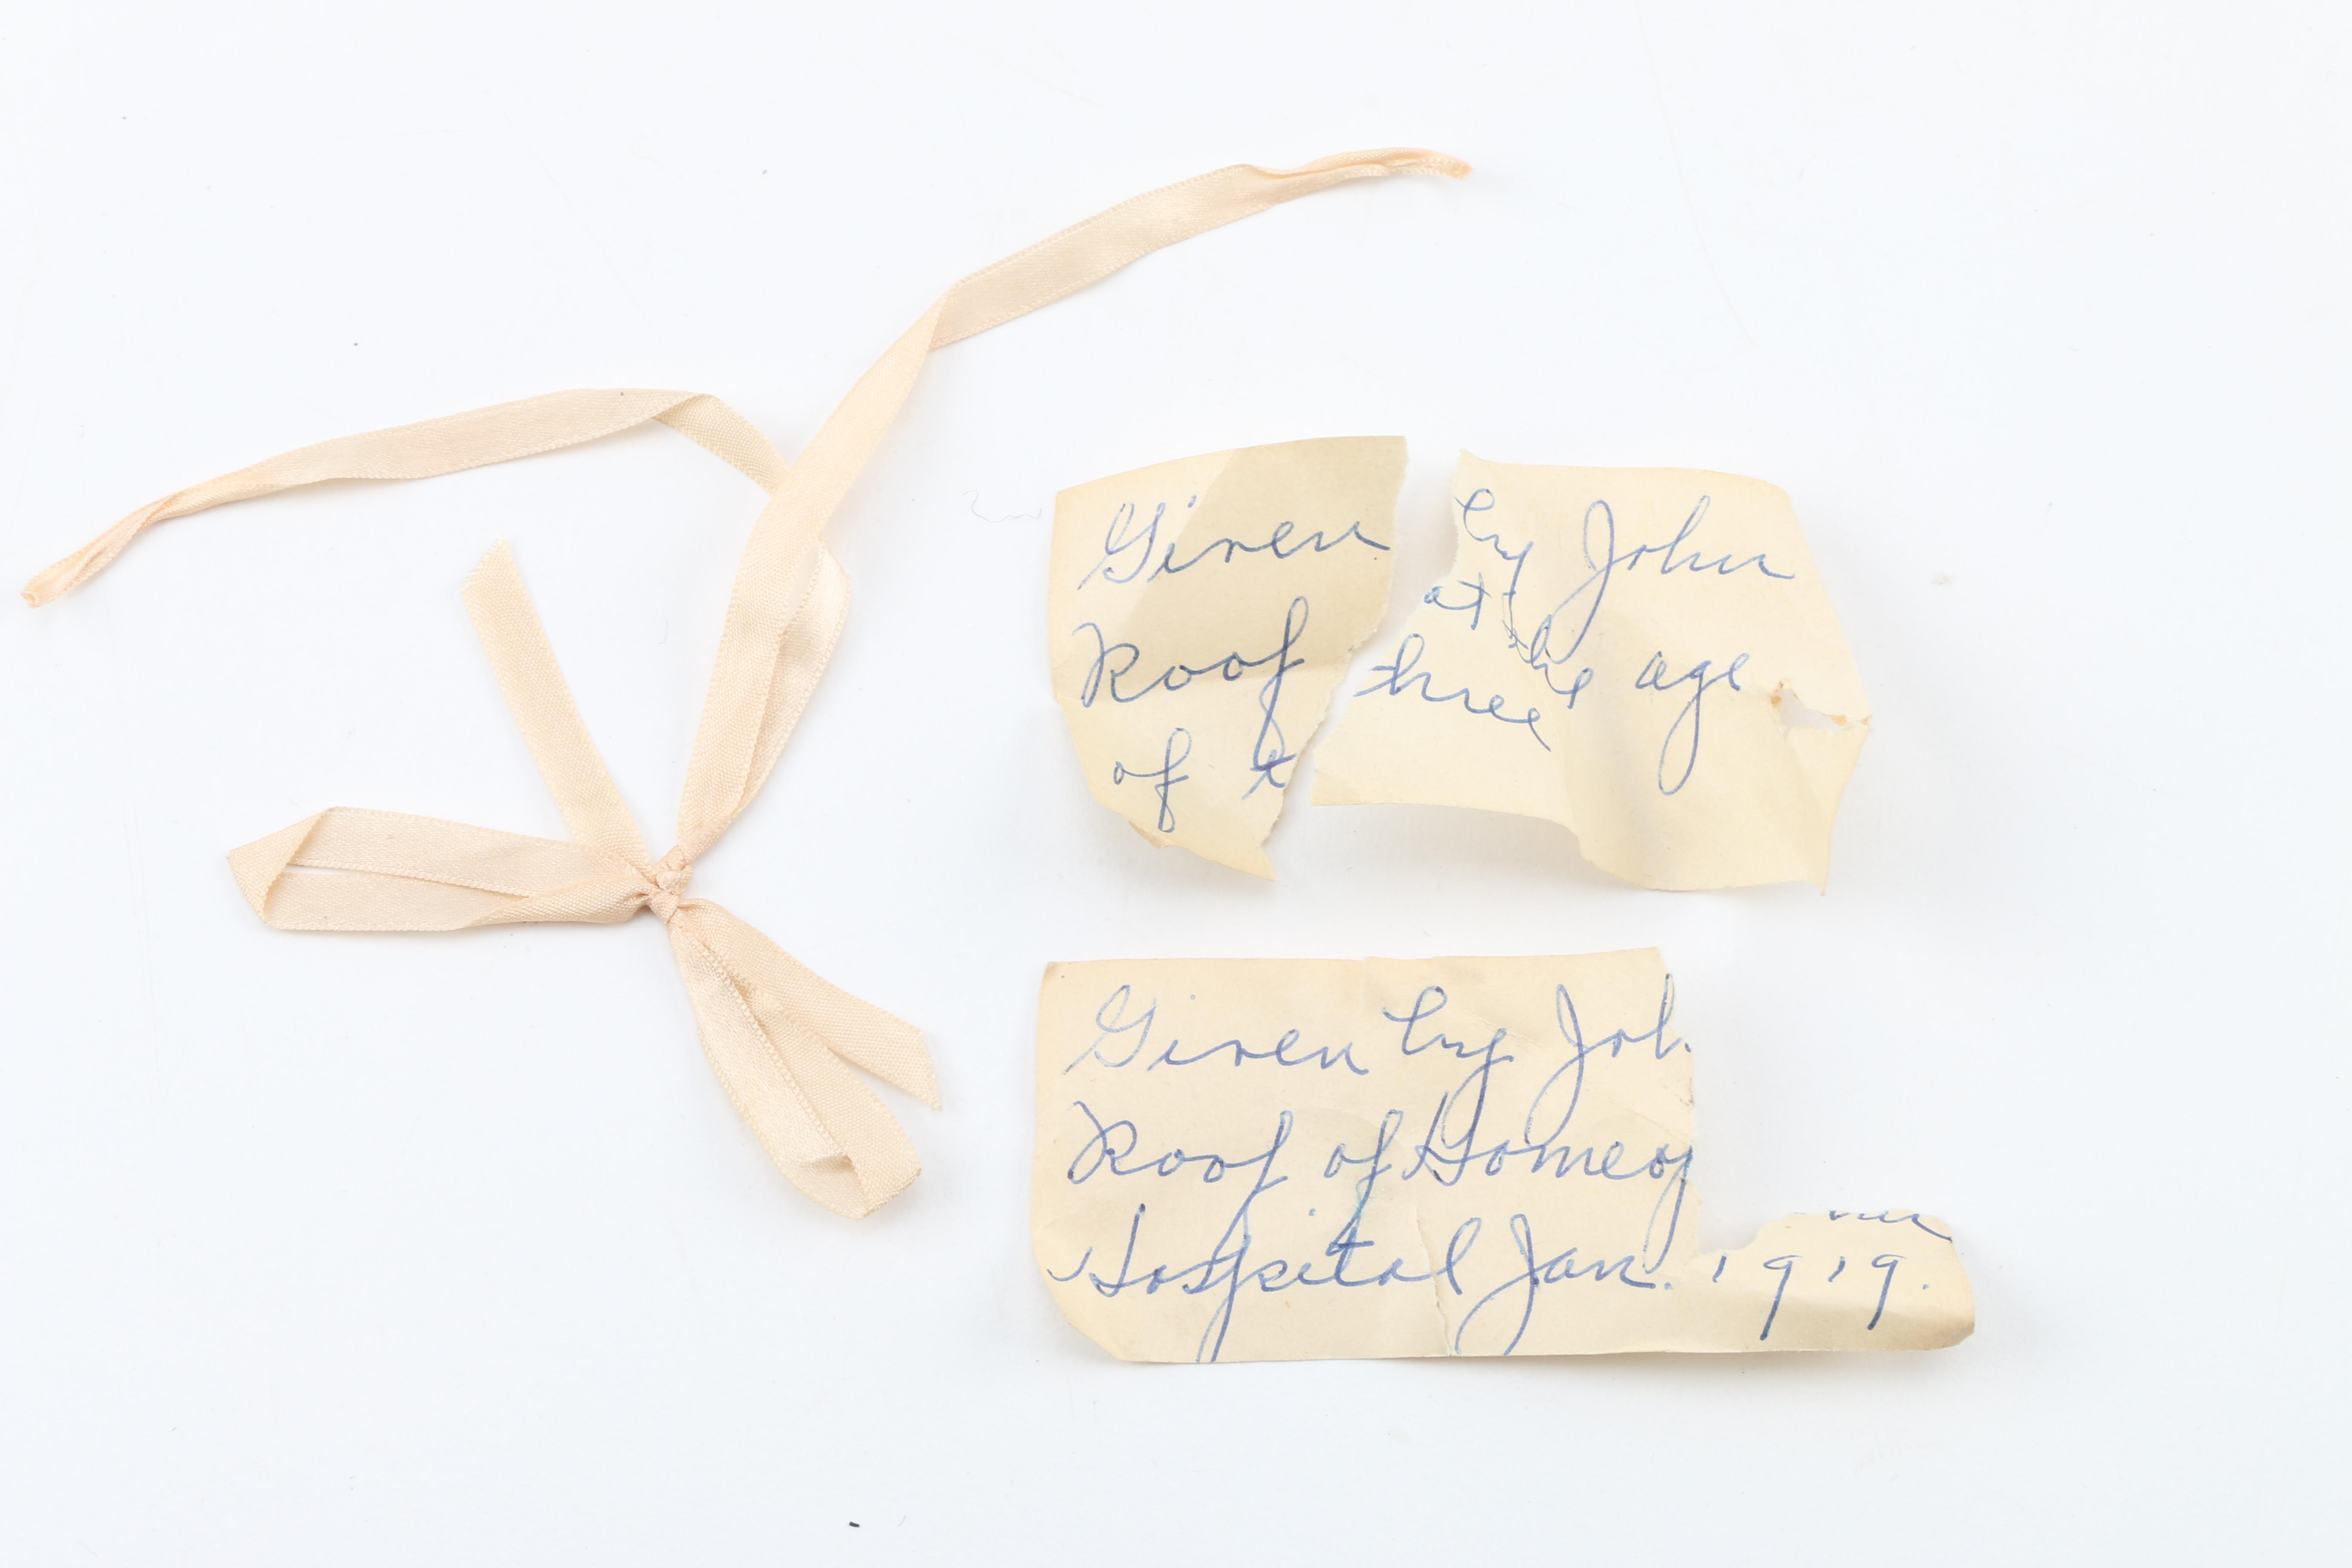 Given by John
Roof at the age
of t three
Given by Joh
Roof of Homeop
Hospital Jan. 1919.